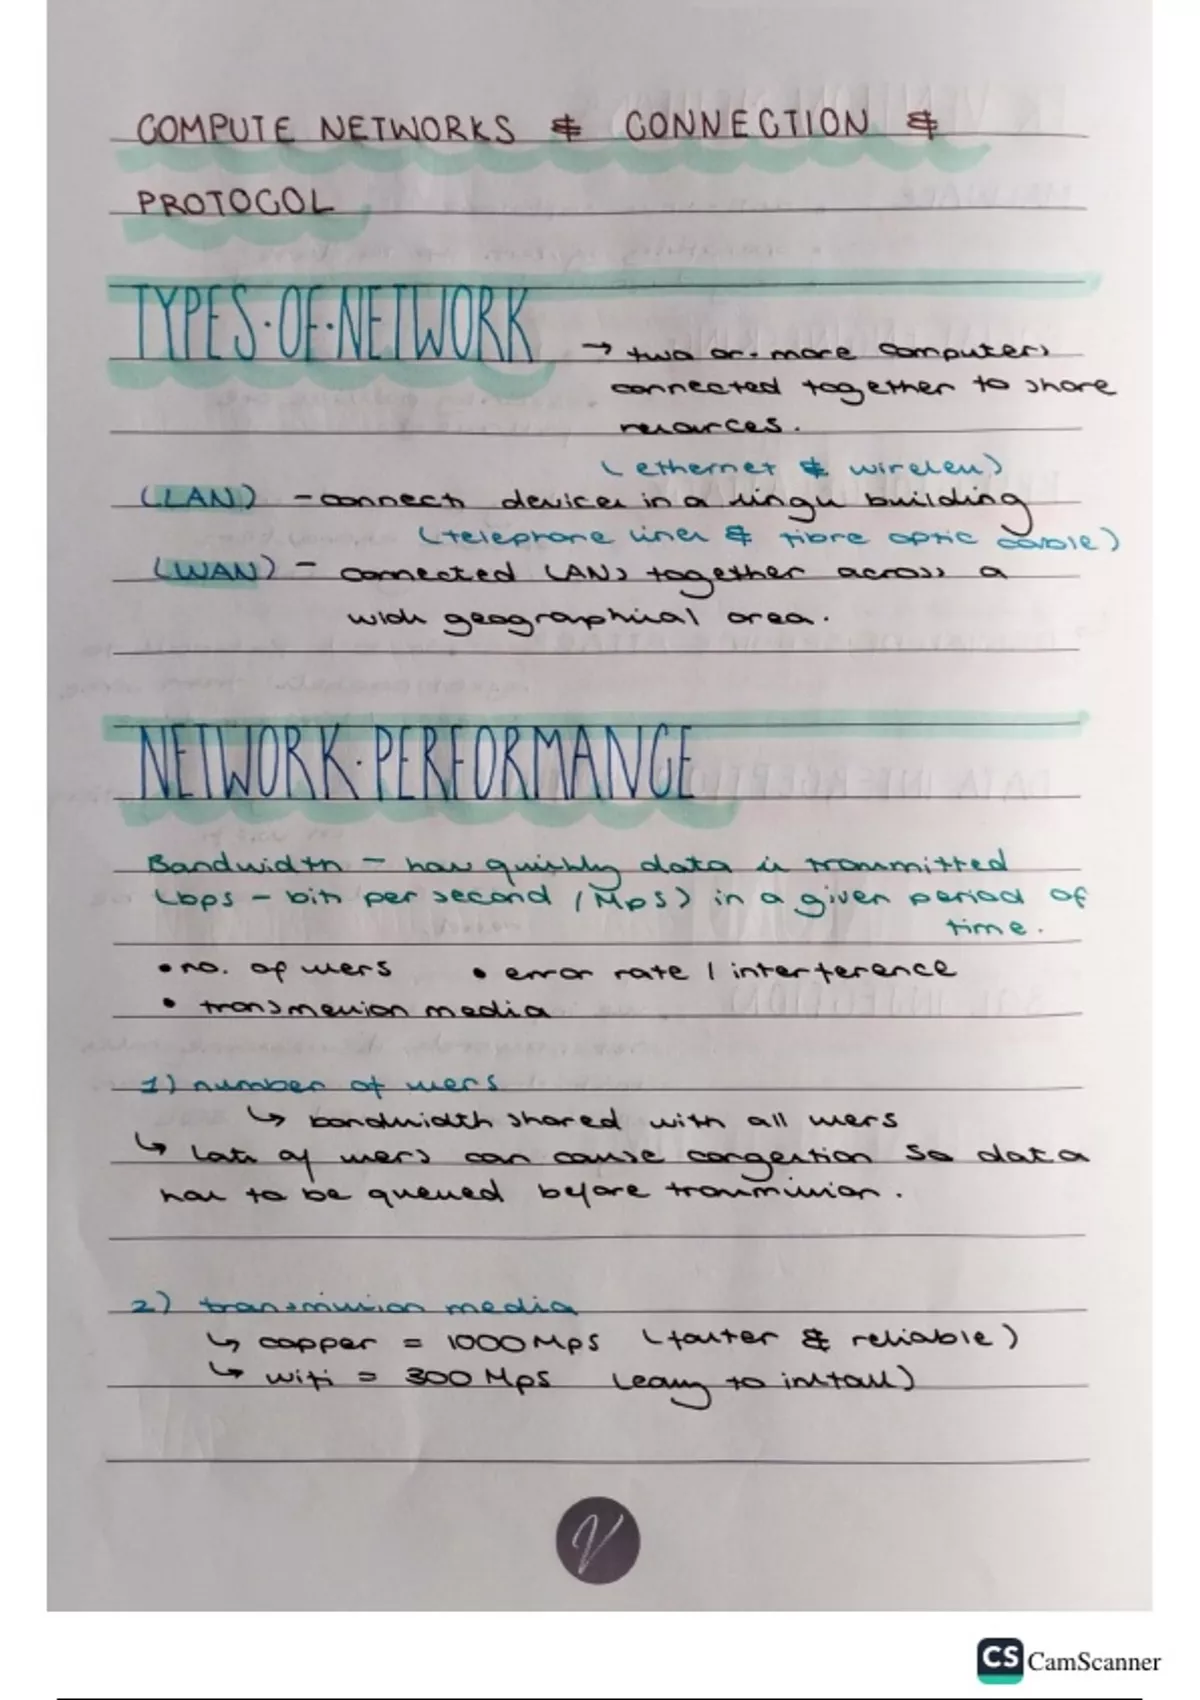 COMPUTE NETWORKS & CONNECTION &
PROTOCOL
TYPES·OF·NETWORK
→ two or more computers
connected together to share
resources.
(ethernet & wireless)
(LAN) - connects devices in a single building
(telephone lines & fibre optic cable)
(WAN) - connected LANs together across a
wide geographical area.
NETWORK·PERFORMANCE
Bandwidth - how quickly data is transmitted
(bps - bits per second / Mps) in a given period of
time.
• no. of users • error rate / interference
• transmission media
1) number of users
↳ bandwidth shared with all users
↳ lots of users can cause congestion so data
has to be queued before transmission.
2) transmission media
↳ copper = 1000 Mps (faster & reliable)
↳ wifi = 300 Mps (easy to install)
V
CS CamScanner